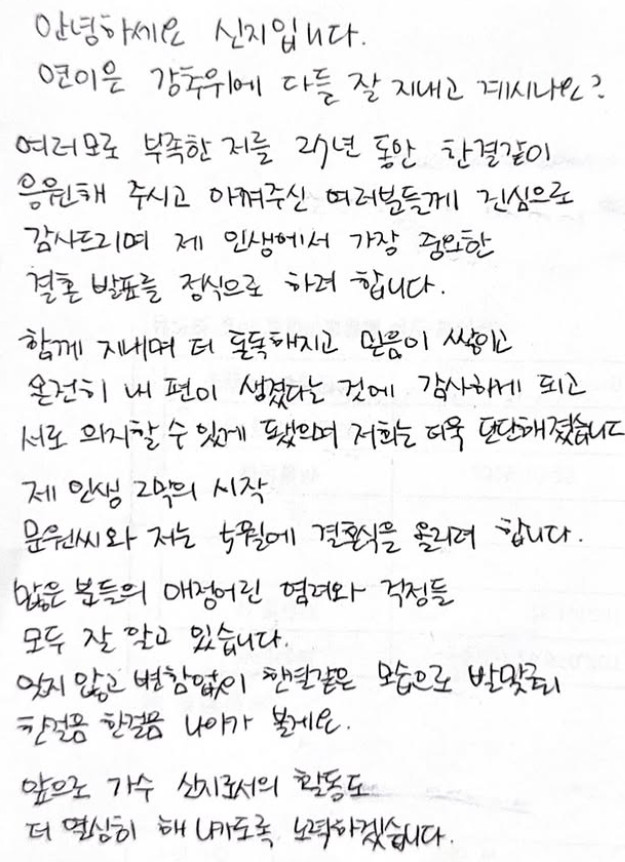 안녕하세요 신지입니다.
연이은 강추위에 다들 잘 지내고 계시나요?
여러모로 부족한 저를 27년 동안 한결같이
응원해 주시고 아껴주신 여러분들께 진심으로
감사드리며 제 인생에서 가장 중요한
결혼 발표를 정식으로 하려 합니다.
함께 지내며 더 돈독해지고 믿음이 쌓이고
온전히 내 편이 생겼다는 것에 감사하게 되고
서로 의지할 수 있게 됐으며 저희는 더욱 단단해졌습니다
제 인생 2막의 시작
문원씨와 저는 5월에 결혼식을 올리려 합니다.
많은 분들의 애정어린 염려와 걱정들
모두 잘 알고 있습니다.
잊지 않고 변함없이 한결같은 모습으로 발맞추어
한걸음 한걸음 나아가 볼게요.
앞으로 가수 신지로서의 활동도
더 열심히 해 나가도록 노력하겠습니다.